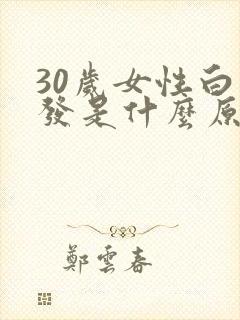 30歲女性白
發是什麼原
鄭雲春